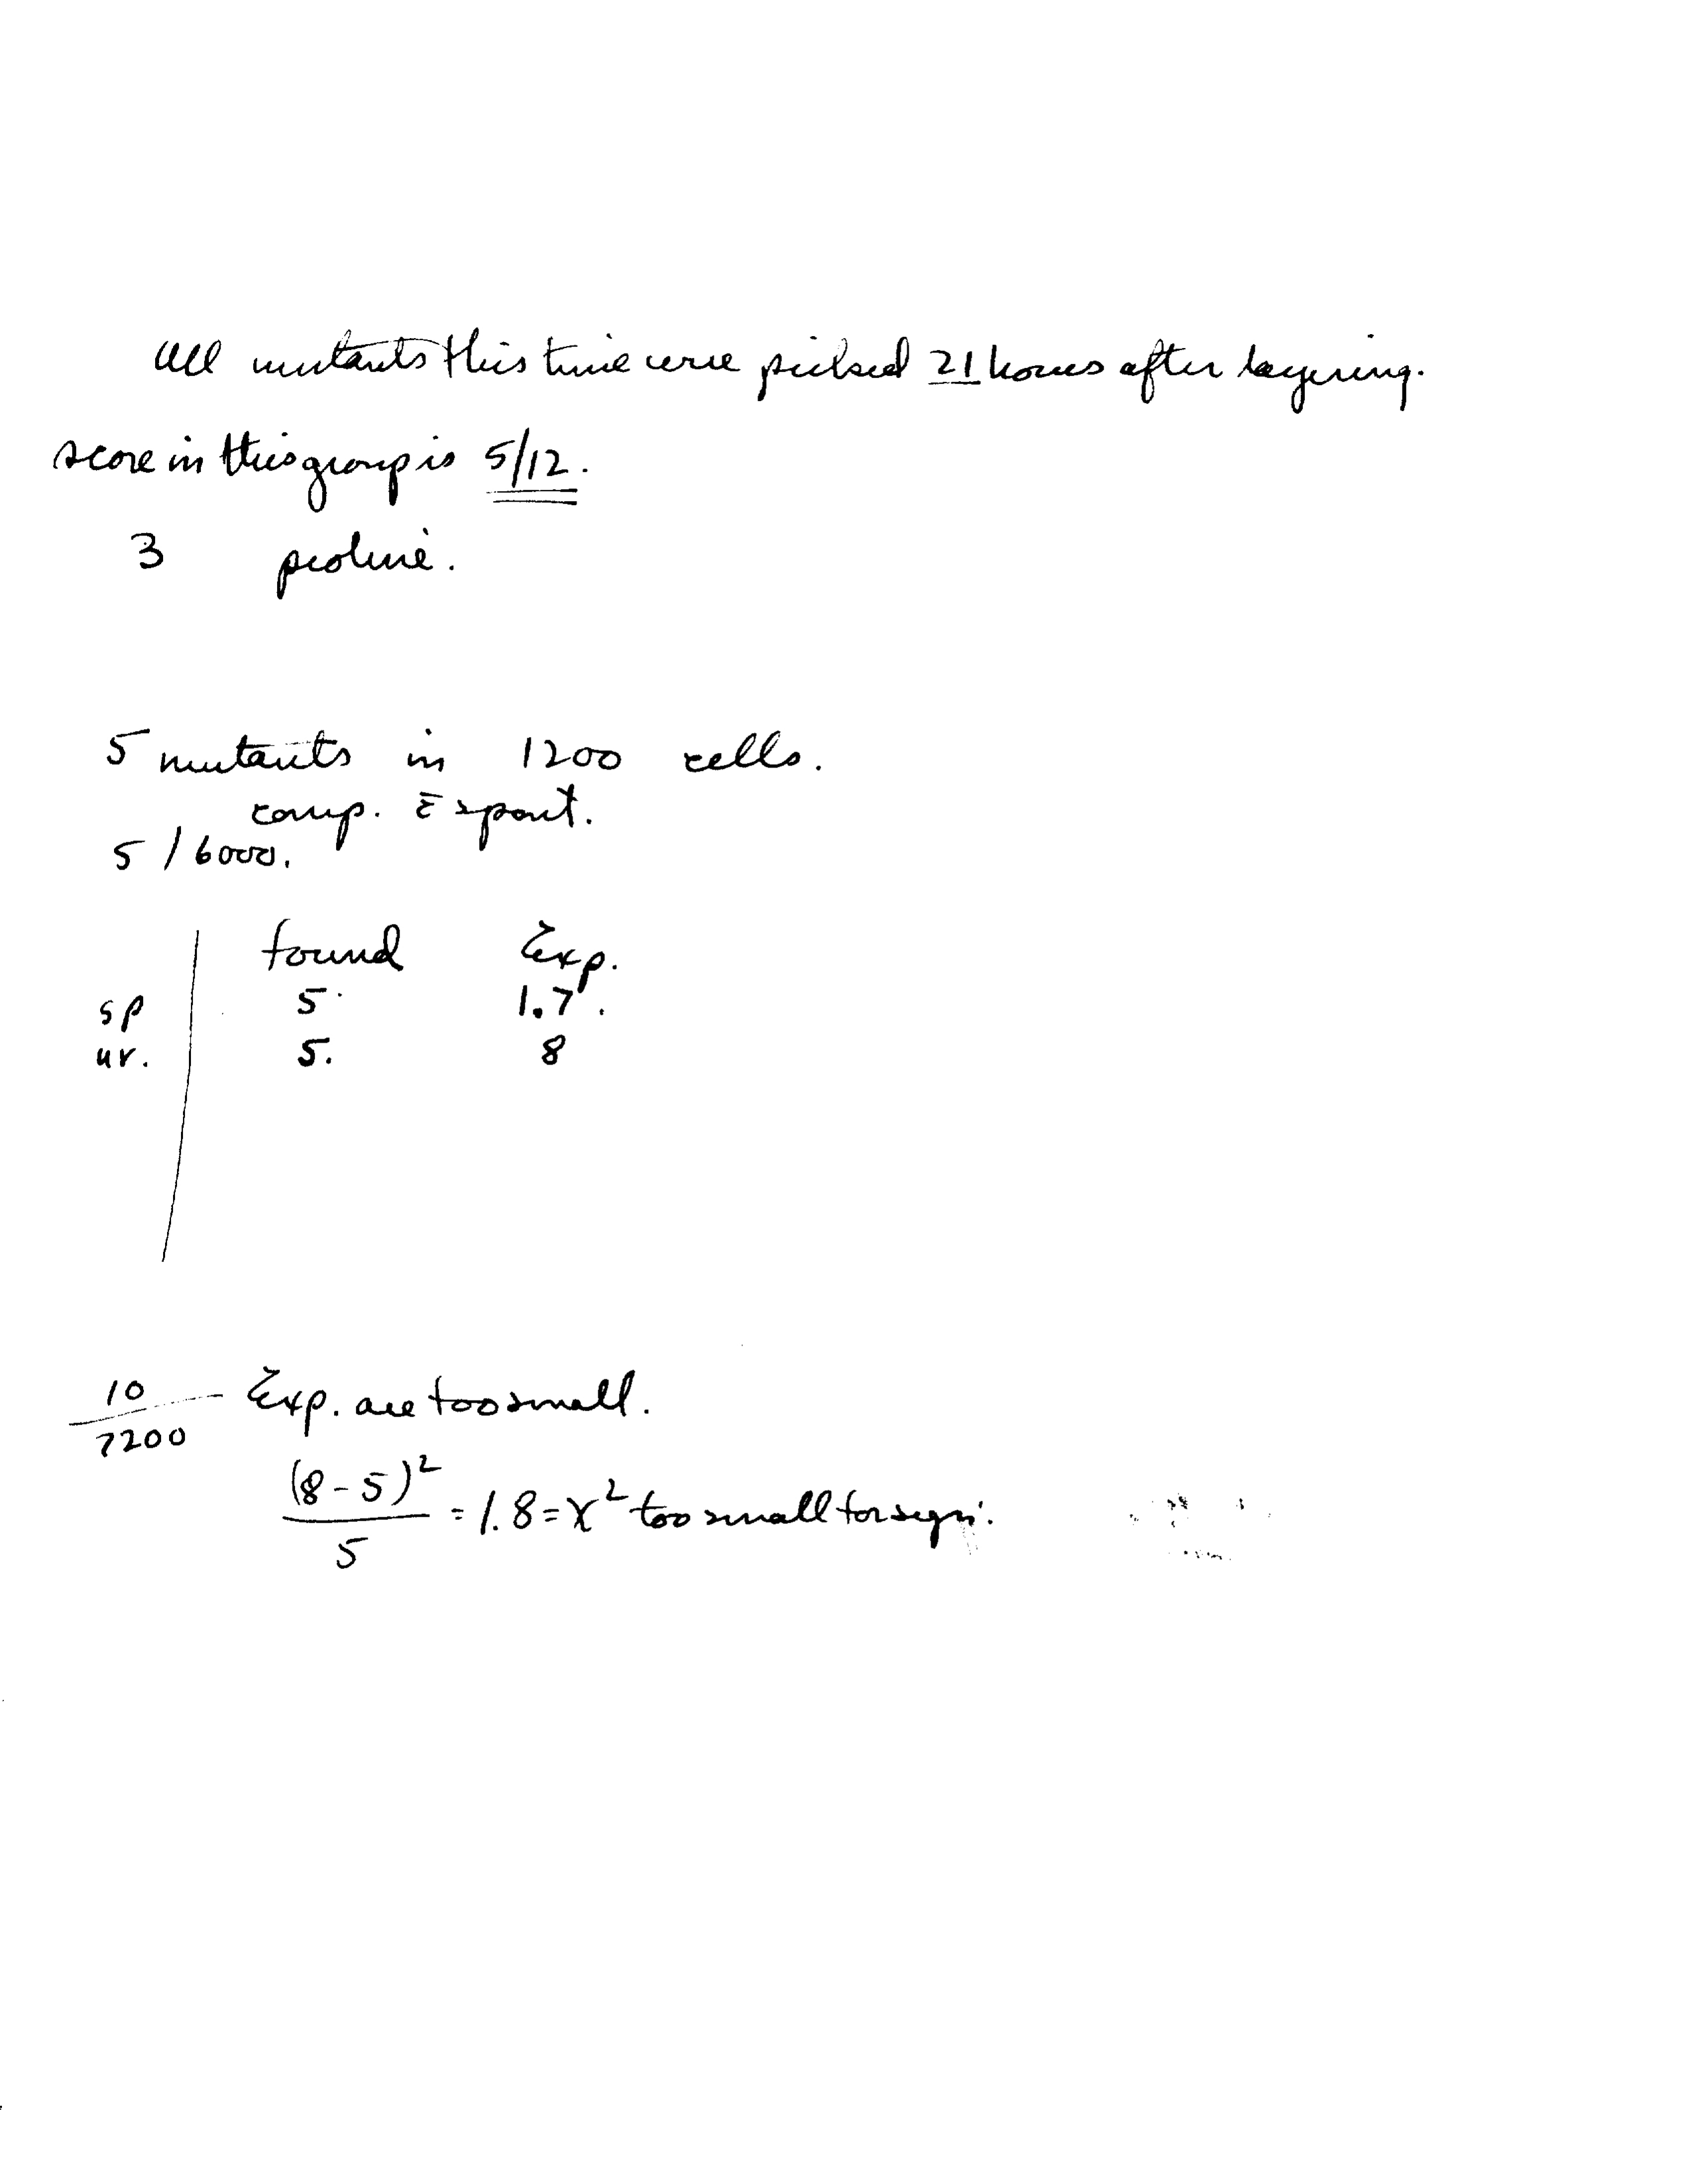 All mutants this time were picked 21 hours after layering.
score in this group is 5/12.
3 proline.
5 mutants in 1200 cells.
comp. c̄ spont.
5/6000.
found Exp.
sp 5 1.7.
uv. 5. 8
10/7200 Exp. are too small.
(8-5)²/5 = 1.8 = χ² too small for sign.